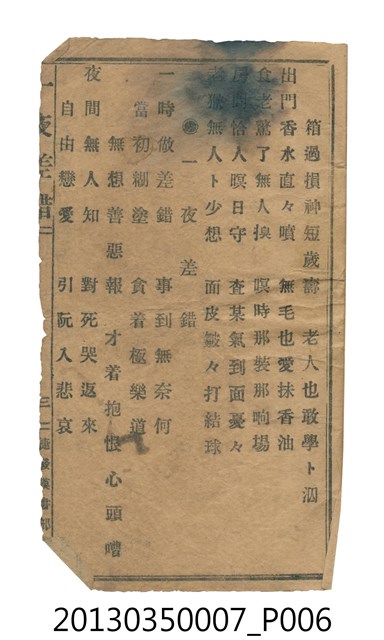 箱過損神短歲壽　老人也敢學卜泅
出門香水直々噴　無毛也愛抹香油
食老驚了無人換　嘆時那裝那哅場
人嘆日守　查某氣到面憂々
無人卜少想　面皮皺々打結球
一夜差錯
一時做差錯　事到無奈何
當初糊塗　貪着極樂道
無想善惡報　才着抱恨心頭嘈
夜間無人知　對死哭返來
自由戀愛　引阮入悲哀
一夜差錯
20130350007_P006